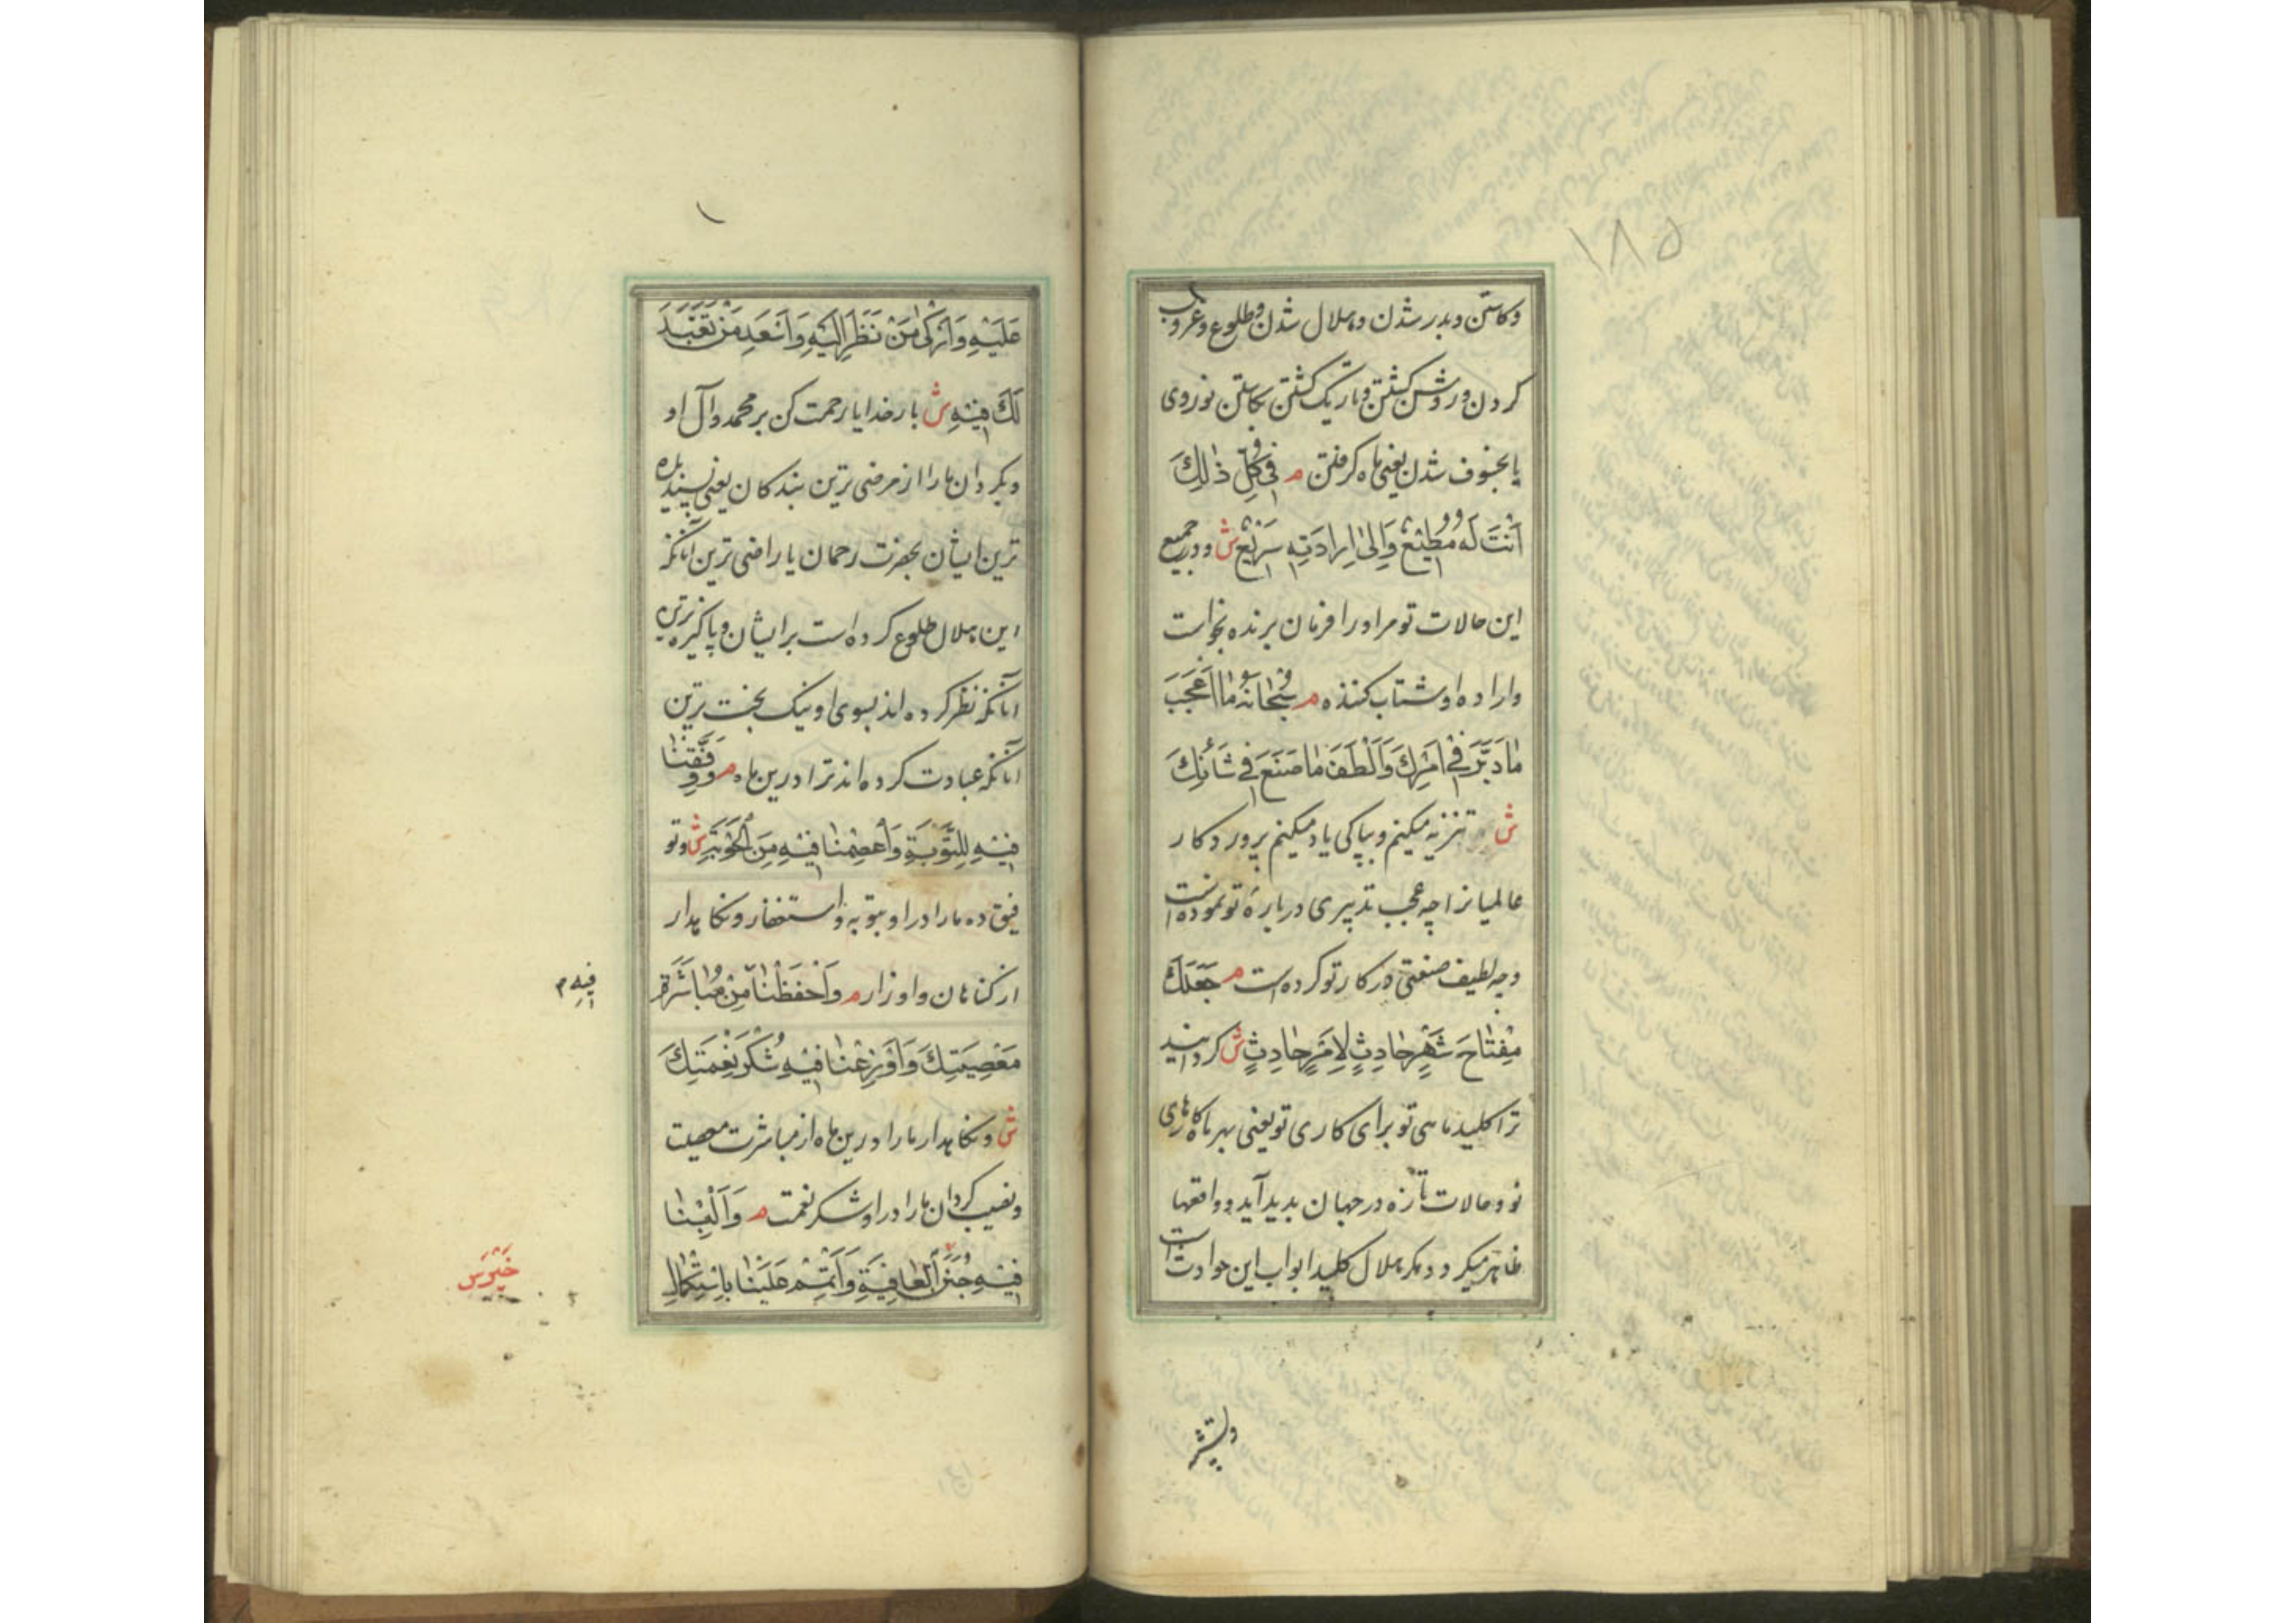 ۱۸۵
وکاستن و بدر شدن و هلال شدن و طلوع و غروب
کردن و روشن کشتن و تاریک کشتن بکاستن نوروی
یا بخسوف شدن یعنی ماه کرفتن م فِی کُلِّ ذٰلِكَ
اَنْتَ لَهُ مُطیٖعٌ وَاِلیٰ اِرادَتِهِ سَریٖعٌ ش و در جمیع
این حالات تو مر او را فرمان برنده بخواست
و اراده او شتاب کننده م سُبْحانَهُ مٰا اَعْجَبَ
مٰا دَبَّرَ فیٖ اَمْرِكَ وَاَلْطَفَ مٰا صَنَعَ فیٖ شَأْنِكَ
ش تنزیه میکنم و بپاکی یاد میکنم پروردکار
عالمیانرا چه عجب تدبیری درباره تو نموده است
و چه لطیف صنعتی در کار تو کرده است م جَعَلَكَ
مِفْتٰاحَ شَهْرٍ حٰادِثٍ لِاَمْرٍ حٰادِثٍ ش کردانید
ترا کلید ماهی نو برای کاری نو یعنی بهر ماه کارهای
نو و حالات تازه در جهان بدید آید و واقعها
ظاهر میکردد مکر هلال کلید ابواب این حوادث است
عَلَیْهِ وَاَزْکیٰ مَنْ نَظَرَ اِلَیْهِ وَاَسْعَدِ مَنْ تَعَبَّدَ
لَكَ فیٖهِ ش بار خدایا رحمت کن بر محمد و آل او
و بکردان ما را از مرضی ترین بندکان یعنی پسندیده
ترین ایشان بحضرت رحمان یا راضی ترین آنانکه
این هلال طلوع کرده است بر ایشان و پاکیزه ترین
آنانکه نظر کرده اند بسوی او و نیک بخت ترین
آنانکه عبادت کرده اند ترا درین ماه م وَوَفِّقْنٰا
فیٖهِ لِلتَّوْبَةِ وَاعْصِمْنٰا فیٖهِ مِنَ الْحَوْبَةِ ش و تو
فیق ده ما را در او بتوبه و استغفار و نکاهدار
از کناهان و اوزار م وَاحْفَظْنٰا مِنْ مُبٰاشَرَةِ
فیٖهِ م
مَعْصِیَتِكَ وَاَوْزِعْنٰا فیٖهِ شُکْرَ نِعْمَتِكَ
ش و نکاهدار ما را درین ماه از مباشرت معصیت
و نصیب کردان ما را در او شکر نعمت م وَاَلْبِسْنٰا
فیٖهِ جُنَنَ الْعٰافِیَةِ وَاَتْمِمْ عَلَیْنٰا بِاسْتِکْمٰالِ